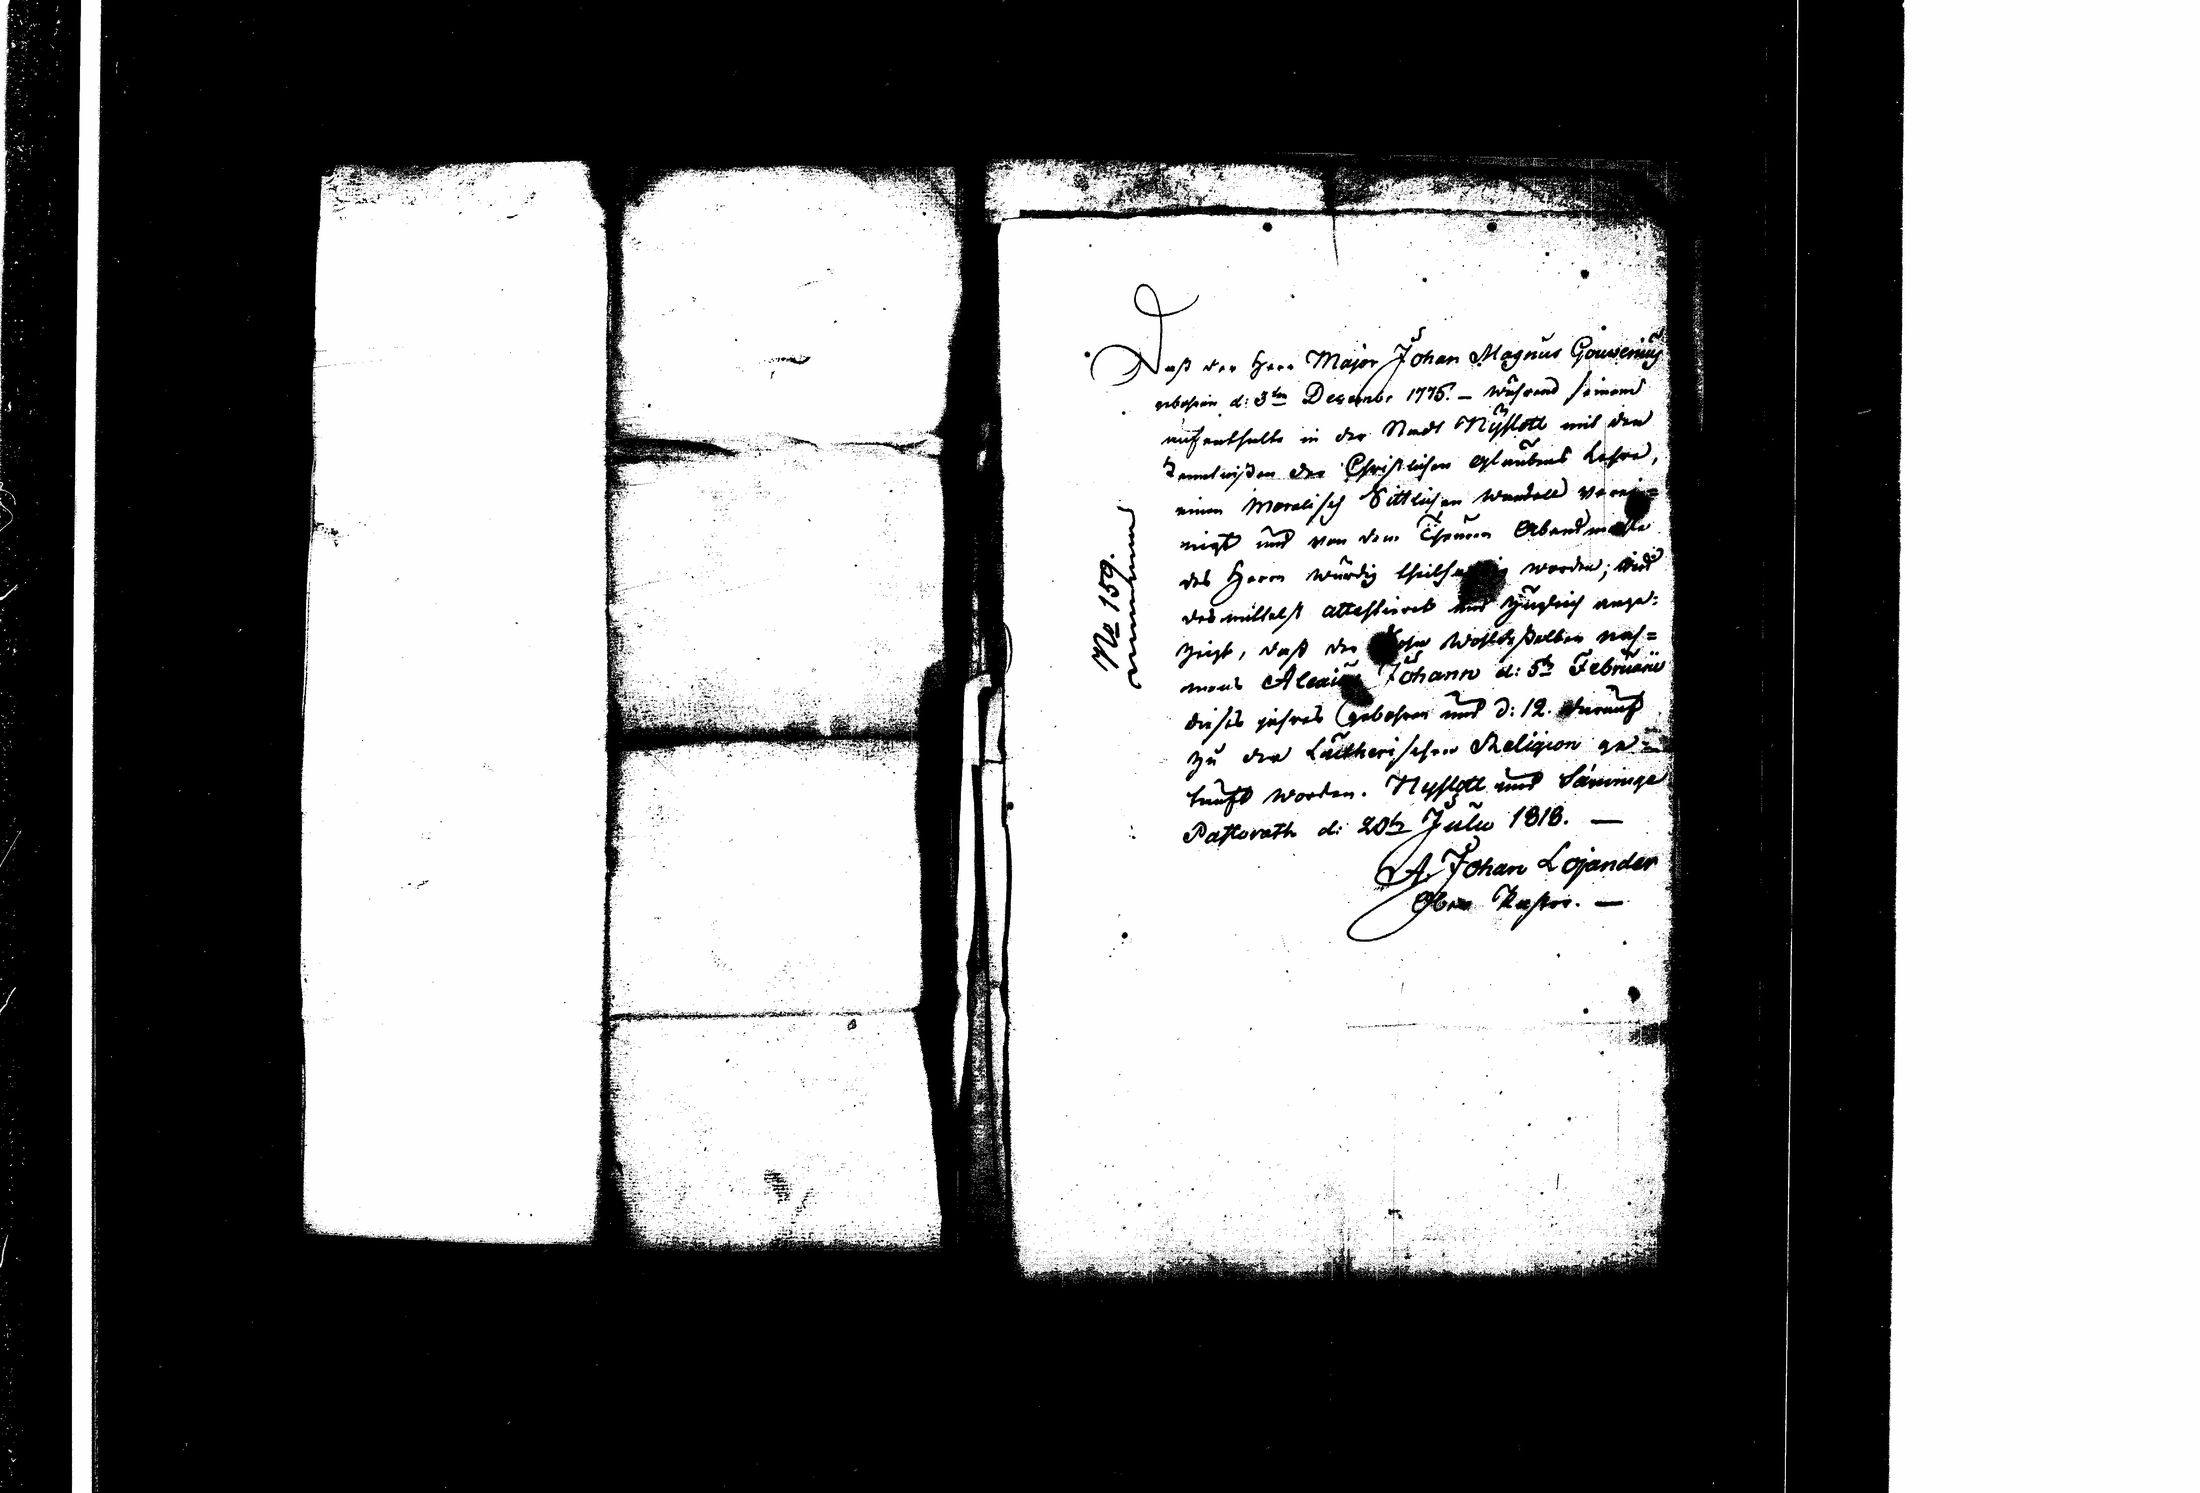 No 159.
Daß der Herr Major Johan Magnus Gouvenius
gebohren d: 3ten Decembr 1775. – während seinem
aufenthalte in der Stadt Nÿslott mit den
Kenntnißen der Christlichen Glaubens Lehre,
einen Moralisch Sittlichen wandell verei=
nigt und von dem Theuren Abendmahle
des Herrn würdig theilhaftig worden; wird
desmittelst attestiret und zugleich ange:
zeigt, daß der Sohn Wohldeßelben nah=
mens Johann d: 5ten Februarii
dieses jahres gebohren und d: 12. darauf
zu der Lutherischen Religion ge=
tauft worden. Nyslott und Säminge
Pastorath d: 20ten Julii 1818. —
A. Johan Lojander
Ober Pastor. —